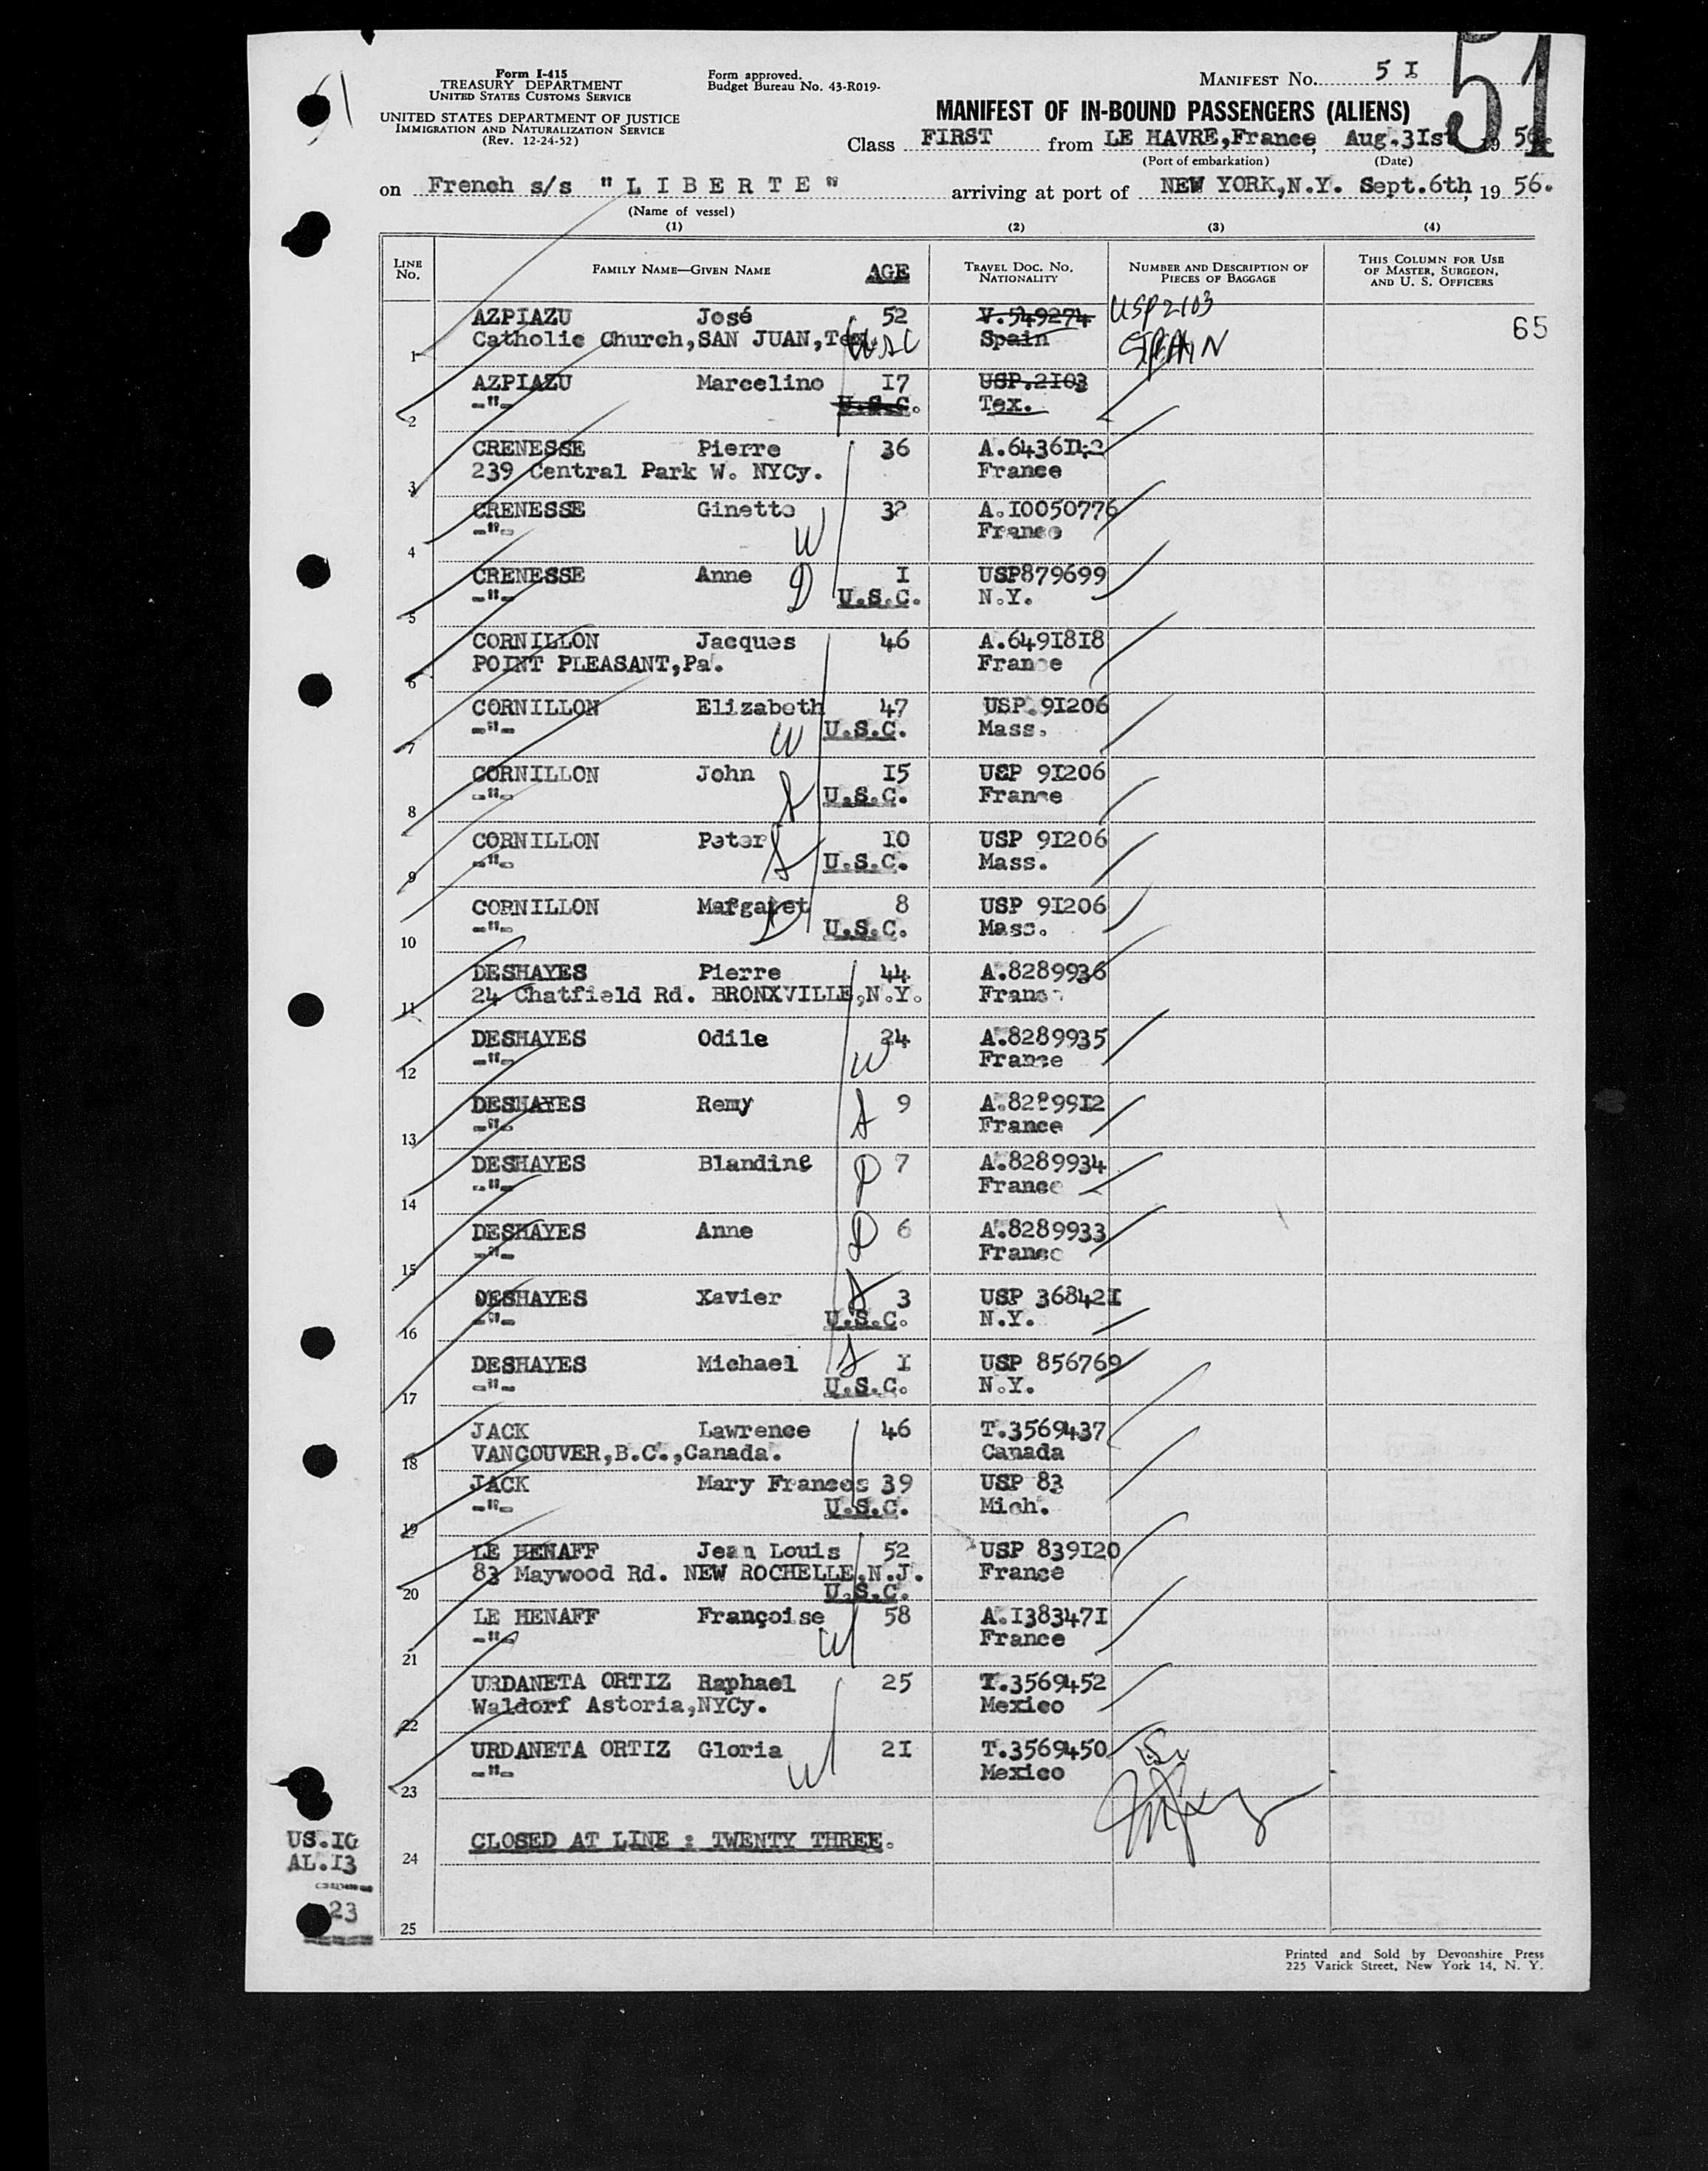 Form I-415
TREASURY DEPARTMENT
UNITED STATES CUSTOMS SERVICE
UNITED STATES DEPARTMENT OF JUSTICE
IMMIGRATION AND NATURALIZATION SERVICE
(Rev. 12-24-52)
Form approved.
Budget Bureau No. 43-R019-
MANIFEST No. 5 I
51
MANIFEST OF IN-BOUND PASSENGERS (ALIENS)
Class FIRST from LE HAVRE,France, Aug.3Ist 19 56.
(Port of embarkation) (Date)
on French s/s "L I B E R T E" arriving at port of NEW YORK,N.Y. Sept.6th, 19 56.
(Name of vessel)
(1) (2) (3) (4)
LINE No. FAMILY NAME—GIVEN NAME AGE TRAVEL DOC. No. NATIONALITY NUMBER AND DESCRIPTION OF PIECES OF BAGGAGE THIS COLUMN FOR USE OF MASTER, SURGEON, AND U. S. OFFICERS
AZPIAZU José 52 V.549274 USP2103 65
1 Catholic Church,SAN JUAN,Tex. USC Spain SPAIN
AZPIAZU Marcelino I7 USP.2I03
2 -"- U.S.C. Tex.
CRENESSE Pierre 36 A.6436II
3 239 Central Park W. NYCy. France
CRENESSE Ginette 32 A.I0050776
4 -"- W France
CRENESSE Anne D I USP879699
5 -"- U.S.C. N.Y.
CORNILLON Jacques 46 A.649I8I8
6 POINT PLEASANT,Pa. France
CORNILLON Elizabeth 47 USP.9I206
7 -"- W U.S.C. Mass.
CORNILLON John I5 USP 9I206
8 -"- S U.S.C. France
CORNILLON Peter S I0 USP 9I206
9 -"- U.S.C. Mass.
CORNILLON Margaret 8 USP 9I206
10 -"- D U.S.C. Mass.
DESHAYES Pierre 44 A.8289936
11 24 Chatfield Rd. BRONXVILLE,N.Y. France
DESHAYES Odile 24 A.8289935
12 -"- W France
DESHAYES Remy S 9 A.82899I2
13 -"- France
DESHAYES Blandine D 7 A.8289934
14 -"- France
DESHAYES Anne D 6 A.8289933
15 -"- France
DESHAYES Xavier S 3 USP 36842I
16 -"- U.S.C. N.Y.
DESHAYES Michael S I USP 856769
17 -"- U.S.C. N.Y.
JACK Lawrence 46 T.3569437
18 VANCOUVER,B.C.,Canada. Canada
JACK Mary Frances 39 USP 83
19 -"- U.S.C. Mich.
LE HENAFF Jean Louis 52 USP 839I20
83 Maywood Rd. NEW ROCHELLE,N.J. France
20 U.S.C.
LE HENAFF Françoise 58 A.I38347I
21 -"- W France
URDANETA ORTIZ Raphael 25 T.3569452
22 Waldorf Astoria,NYCy. Mexico
URDANETA ORTIZ Gloria 2I T.3569450
23 -"- W Mexico
US.IO
AL.I3
23
24 CLOSED AT LINE : TWENTY THREE.
25
Printed and Sold by Devonshire Press
225 Varick Street, New York 14, N. Y.